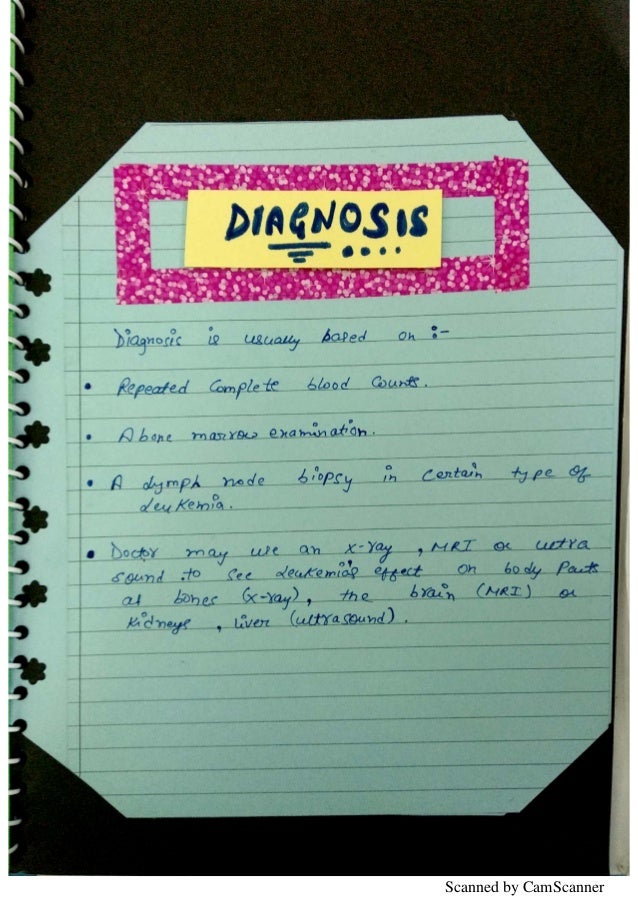 DIAGNOSIS
Diagnosis is usually based on :-
• Repeated Complete blood Counts.
• A bone marrow examination.
• A lymph node biopsy in Certain type of
leukemia.
• Doctor may use an x-ray , MRI or ultra
sound .to See leukemia's effect on body Parts
as bones (x-ray), the brain (MRI) or
kidneys , liver (ultrasound).
Scanned by CamScanner